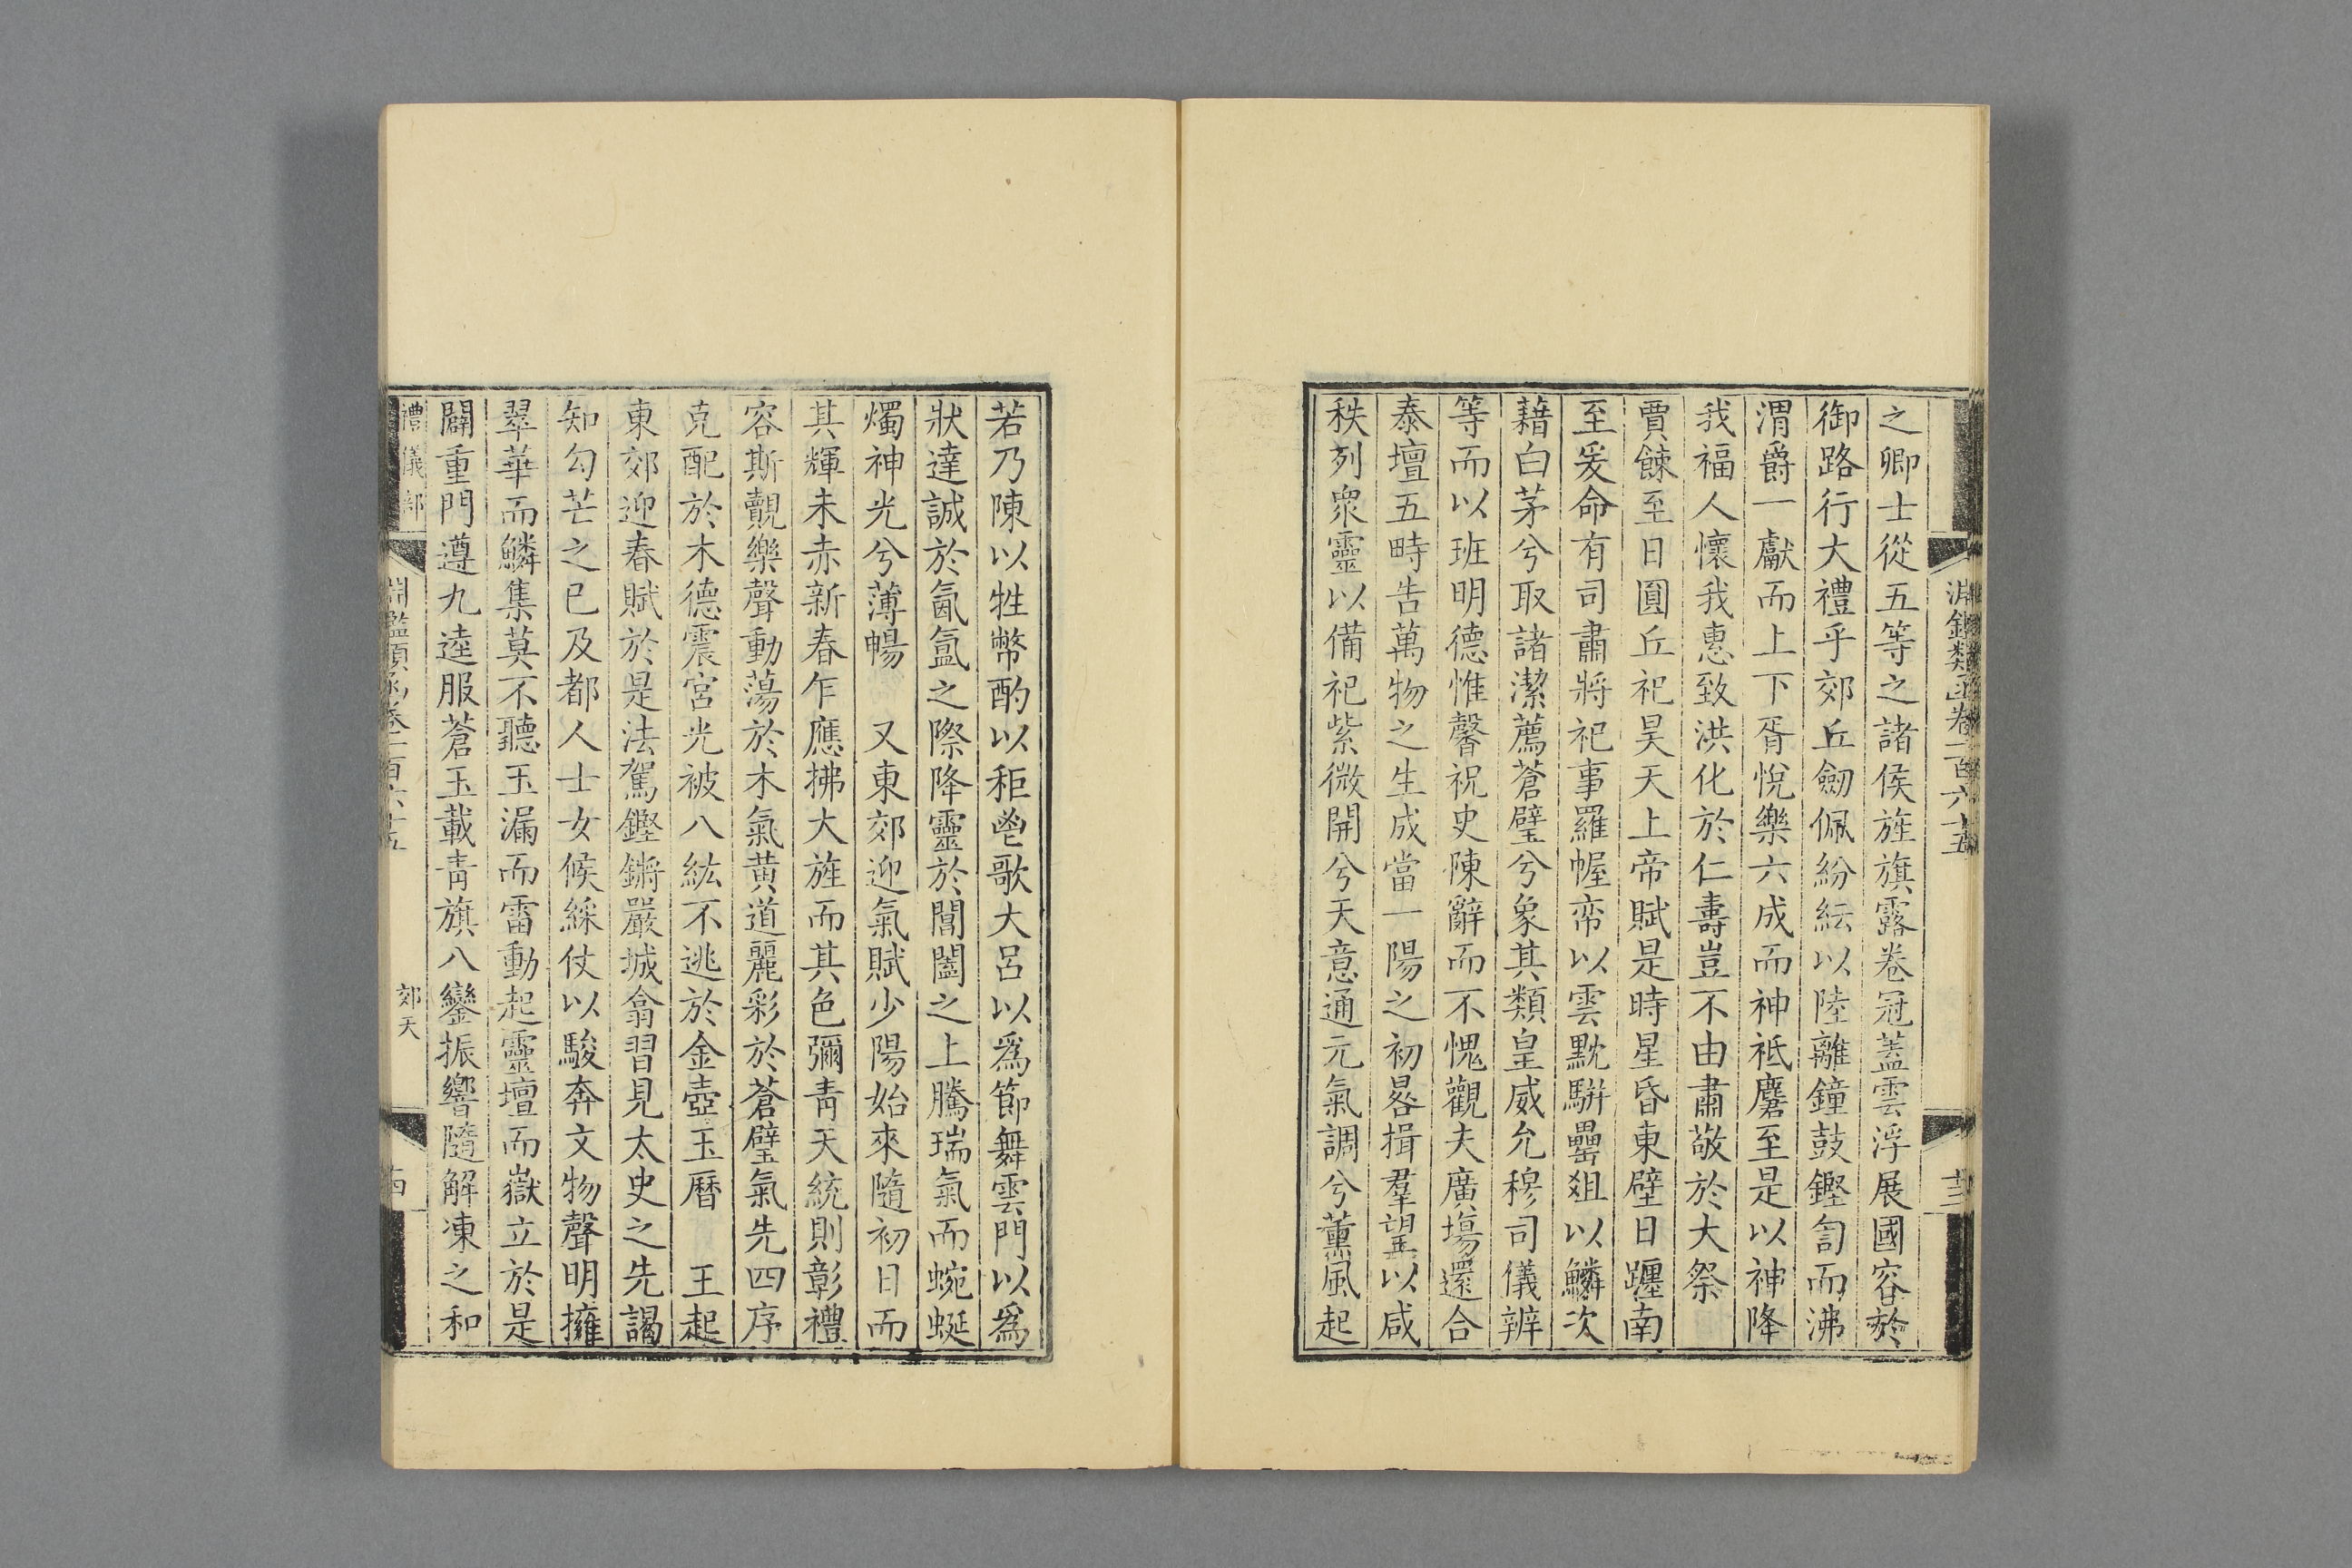 淵鑑類函卷一百六十五
十三
之卿士從五等之諸侯旌旗露卷冠蓋雲浮展國容於
御路行大禮乎郊丘劒佩紛紜以陸離鐘鼓鏗訇而沸
渭爵一獻而上下胥悅樂六成而神祗麏至是以神降
我福人懷我惠致洪化於仁壽豈不由肅敬於大祭
賈餗至日圓丘祀昊天上帝賦是時星昏東壁日躔南
至爰命有司肅將祀事羅幄帟以雲黕駢罍爼以鱗次
藉白茅兮取諸潔薦蒼璧兮象其類皇威允穆司儀辨
等而以班明德惟馨祝史陳辭而不愧觀夫廣塲還合
泰壇五畤告萬物之生成當一陽之初晷揖羣望以咸
秩列衆靈以備祀紫微開兮天意通元氣調兮薰風起
若乃陳以牲幣酌以秬鬯歌大呂以爲節舞雲門以爲
狀達誠於氤氳之際降靈於閶闔之上騰瑞氣而蜿蜒
燭神光兮薄暢 又東郊迎氣賦少陽始來隨初日而
其輝未赤新春乍應拂大旌而其色彌青天統則彰禮
容斯覿樂聲動蕩於木氣黄道麗彩於蒼璧氣先四序
克配於木德震宮光被八紘不逃於金壺玉曆 王起
東郊迎春賦於是法駕鏗鏘嚴城翕習見太史之先謁
知勾芒之已及都人士女候綵仗以駿奔文物聲明擁
翠華而鱗集莫不聽玉漏而雷動起靈壇而嶽立於是
闢重門遵九逵服蒼玉載青旗八鑾振響隨解凍之和
禮儀部
淵鑑類函卷一百六十五
郊天
十四